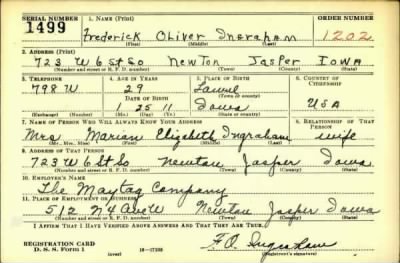 SERIAL NUMBER 1. NAME (Print) ORDER NUMBER
1499 Frederick Oliver Ingraham 1202
(First) (Middle) (Last)
2. ADDRESS (Print)
723 W 6 St So Newton Jasper Iowa
(Number and street or R. F. D. number) (Town) (County) (State)
3. TELEPHONE 4. AGE IN YEARS 5. PLACE OF BIRTH 6. COUNTRY OF CITIZENSHIP
798 W 29 Laurel
DATE OF BIRTH (Town or county)
1 25 11 Iowa USA
(Exchange) (Number) (Mo.) (Day) (Yr.) (State or country)
7. NAME OF PERSON WHO WILL ALWAYS KNOW YOUR ADDRESS 8. RELATIONSHIP OF THAT PERSON
Mrs Marian Elizabeth Ingraham wife
(Mr., Mrs., Miss) (First) (Middle) (Last)
9. ADDRESS OF THAT PERSON
723 W 6 St So Newton Jasper Iowa
(Number and street or R. F. D. number) (Town) (County) (State)
10. EMPLOYER'S NAME
The Maytag Company
11. PLACE OF EMPLOYMENT OR BUSINESS
512 N 4 Ave W Newton Jasper Iowa
(Number and street or R. F. D. number) (Town) (County) (State)
I AFFIRM THAT I HAVE VERIFIED ABOVE ANSWERS AND THAT THEY ARE TRUE.
REGISTRATION CARD F. O. Ingraham
D. S. S. Form 1 (over) (Registrant's signature)